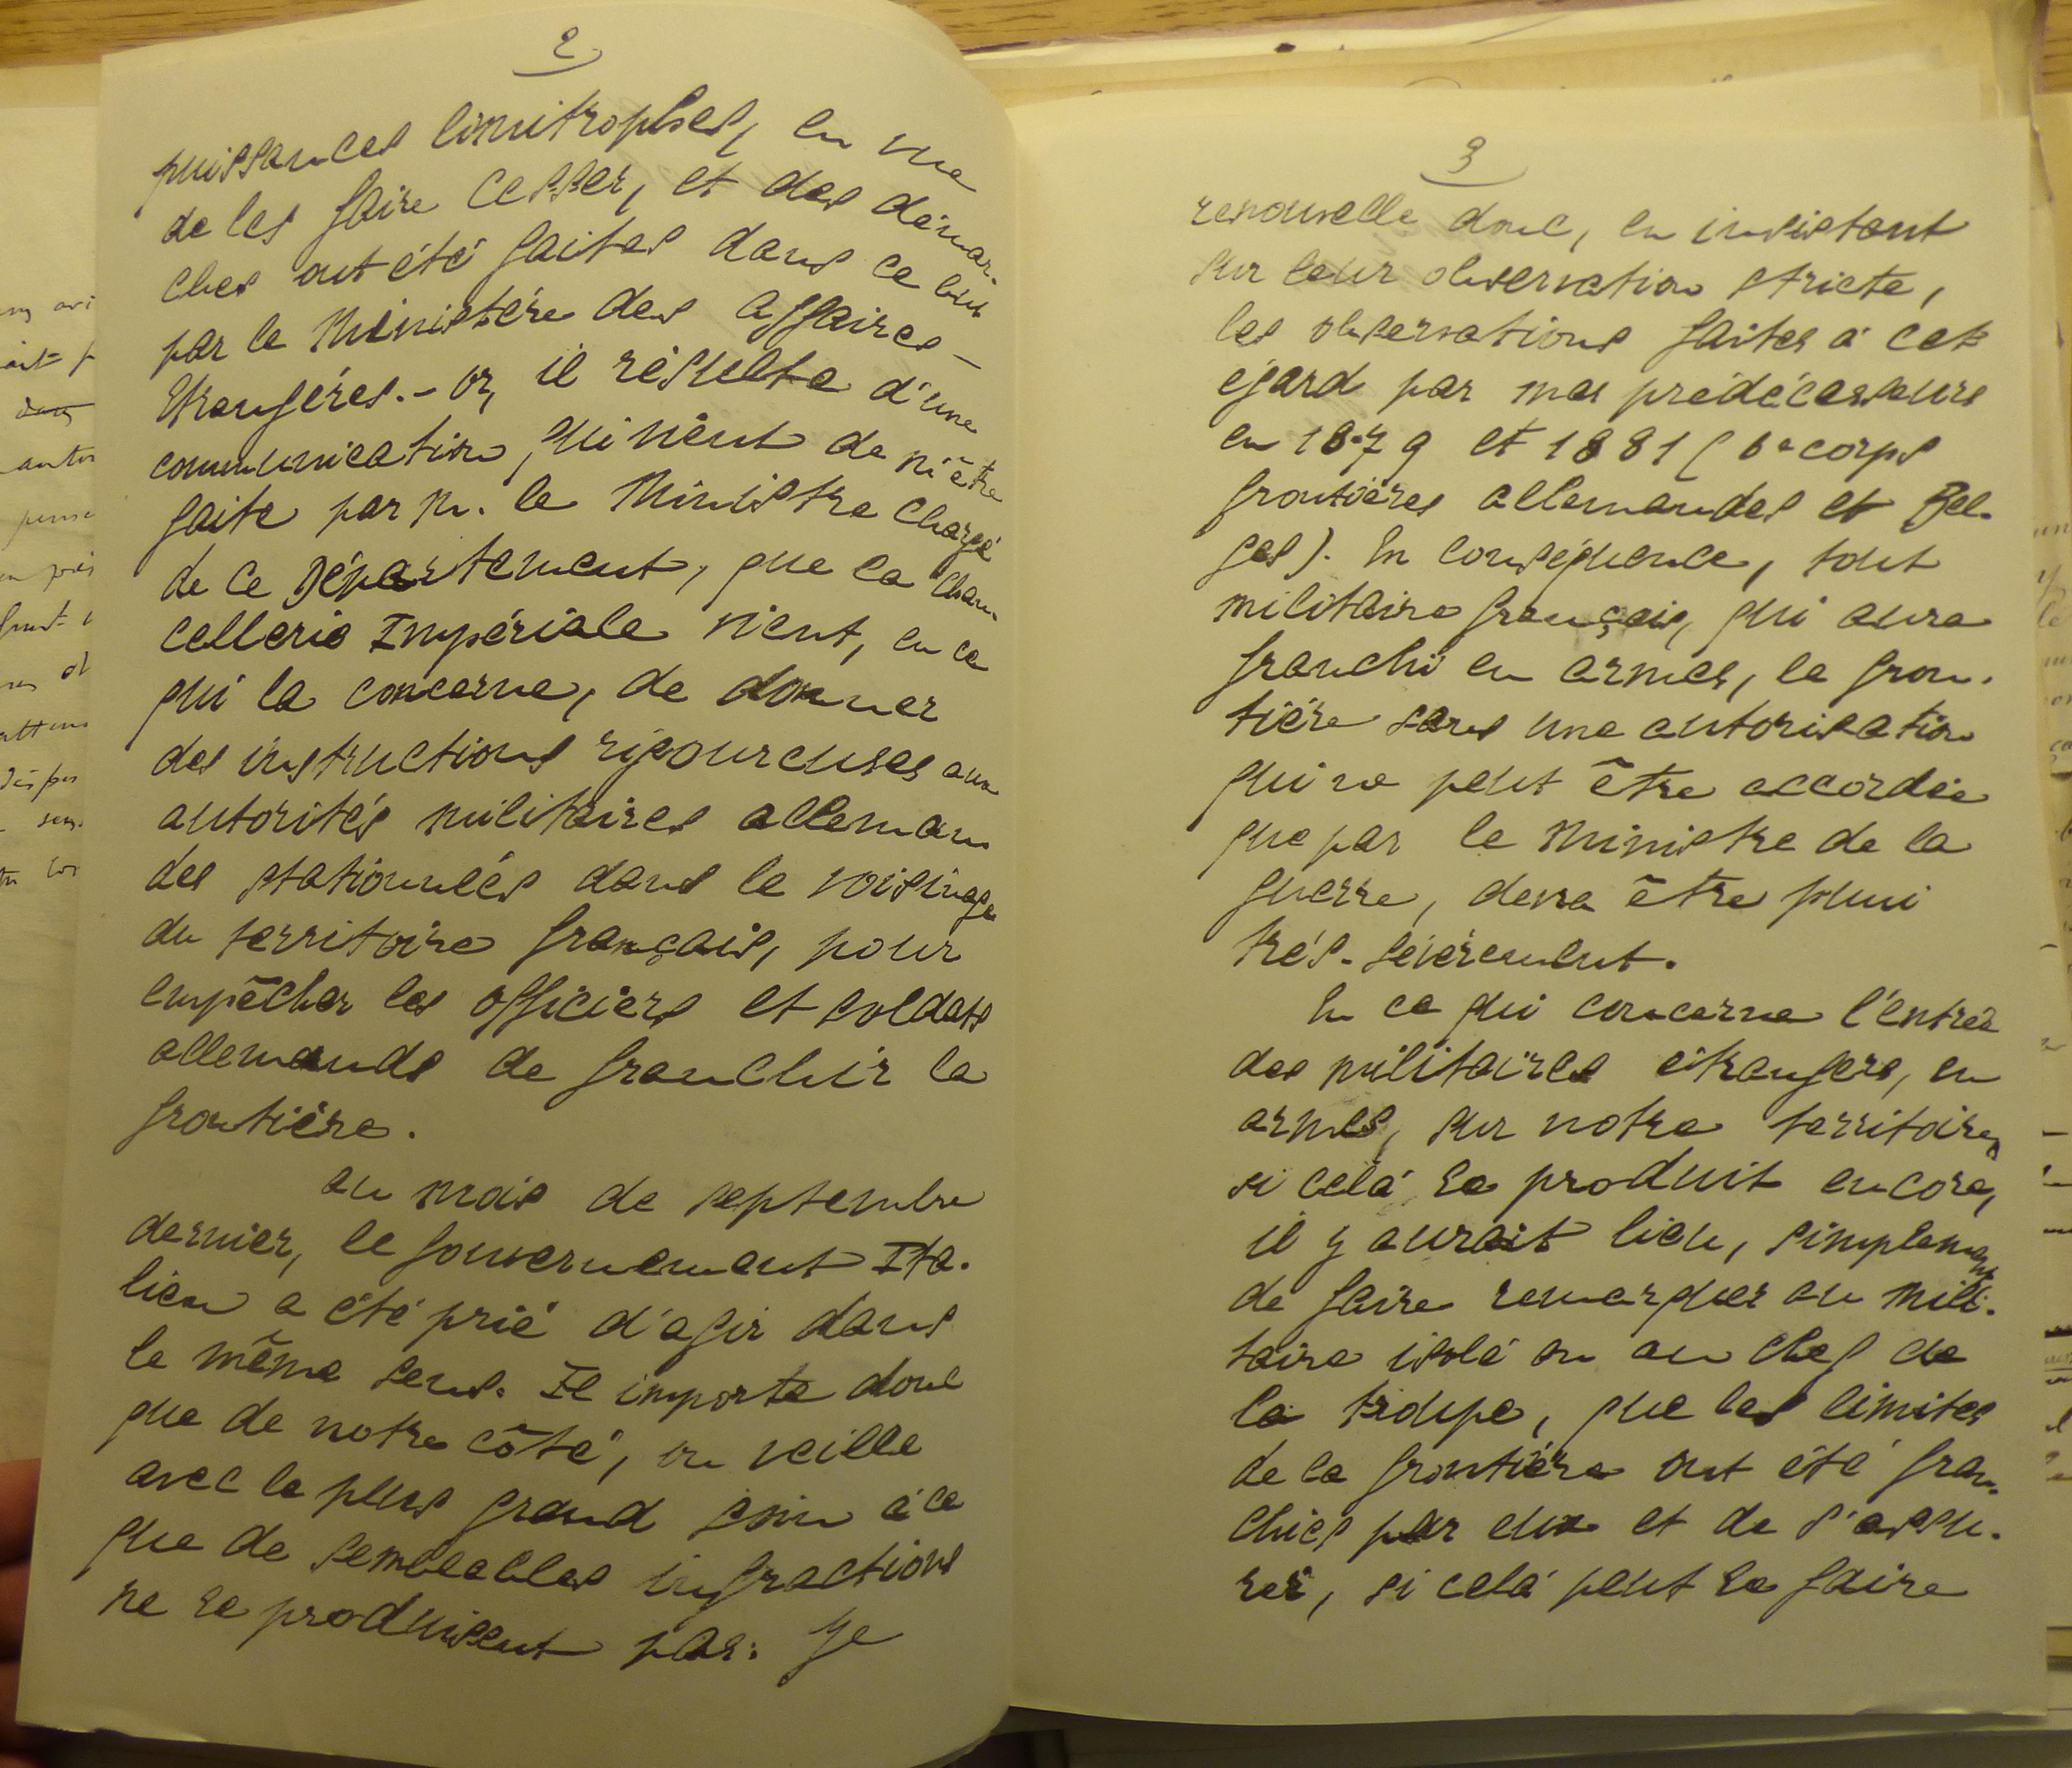 2
puissances limitrophes, en vue
de les faire cesser, et des démar-
ches ont été faites dans ce but
par le Ministère des Affaires-
Etrangères.- or, il résulte d'une
communication, qui vient de m'être
faite par M. le Ministre chargé
de ce Département, que la chan-
cellerie Impériale vient, en ce
qui la concerne, de donner
des instructions rigoureuses aux
autorités militaires alleman
des stationnées dans le voisinage
du territoire français, pour
empêcher les officiers et soldats
allemands de franchir la
frontière.
au mois de septembre
dernier, le gouvernement Ita-
lien a été prié d'agir dans
le même sens. Il importe donc
que de notre côté, on veille
avec le plus grand soin à ce
que de semblables infractions
ne se produisent pas. Je
3
renouvelle donc, en insistant
sur leur observation stricte,
les observations faites à cet
égard par mes prédécesseurs
en 1879 et 1881 ( 6e corps
frontières allemandes et Bel-
ges). En conséquence, tout
militaire français, qui aura
franchi en armes, la fron-
tière sans une autorisation
qui ne peut être accordée
que par le Ministre de la
guerre, devra être puni
très-sévèrement.
En ce qui concerne l'entrée
des militaires étrangers, en
armes, sur notre territoire,
si celà se produit encore,
il y aurait lieu, simplement
de faire remarquer au mili-
taire isolé ou au chef de
la troupe, que les limites
de la frontière ont été fran-
chies par eux et de s'assu-
rer, si celà peut se faire